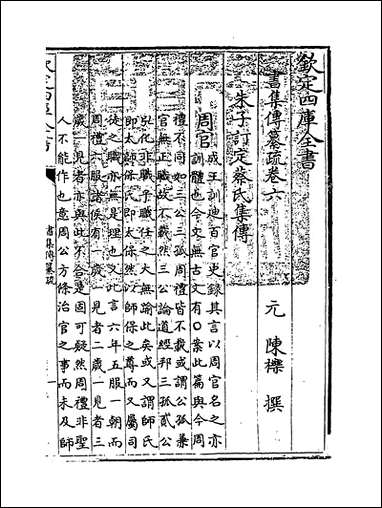 欽定四庫全書
書集傳纂疏卷六
元 陳櫟 撰
朱子訂定蔡氏集傳
周官
成王訓迪百官史録其言以周官名之亦
訓體也今文無古文有○案此篇與今周
禮不同如三公三孤周禮皆不載或謂公孤兼
官無正職故不載然三公論道經邦三孤貳公
弘化非職乎職任之大無踰此矣或又謂師氏
即太師保氏即太保然以師保之尊而反屬司
徒之職亦無是理也又此言六年五服一朝而
周禮六服諸侯有一歲一見者二歲一見者三
歲一見者亦與此不合是固可疑然周禮非聖
人不能作也意周公方條治官之事而未及師
欽定四庫全書
書集傳纂疏
一